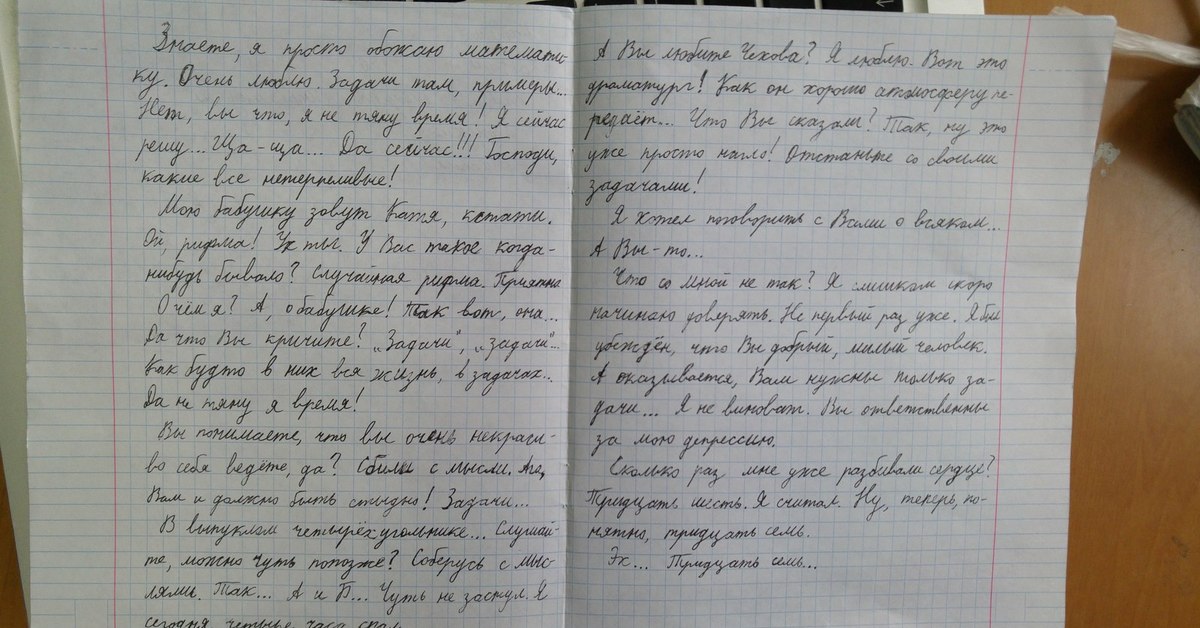 Знаете, я просто обожаю математи-
ку. Очень люблю. Задачи там, примеры...
Нет, вы что, я не тяну время! Я сейчас
решу... Ща-ща... Да сейчас!!! Господи,
какие все нетерпеливые!
Мою бабушку зовут Катя, кстати.
Ой, рифма! Ух ты. У Вас такое когда-
нибудь бывало? Случайная рифма. Приятно
О чём я? А, о бабушке! Так вот, она...
Да что Вы кричите? „Задачи", „задачи"...
Как будто в них вся жизнь, в задачах...
Да не тяну я время!
Вы понимаете, что вы очень некраси-
во себя ведёте, да? Сбили с мысли. Ага,
Вам и должно быть стыдно! Задачи...
В выпуклом четырёхугольнике... Слушай-
те, можно чуть попозже? Соберусь с мыс-
лями. Так... А и Б... Чуть не заснул. Я
сегодня четыре часа спал
А Вы любите Чехова? Я люблю. Вот это
драматург! Как он хорошо атмосферу пе-
редаёт... Что Вы сказали? Так, ну это
уже просто нагло! Отстаньте со своими
задачами!
Я хотел поговорить с Вами о всяком...
А Вы-то...
Что со мной не так? Я слишком скоро
начинаю доверять. Не первый раз уже. Я был
убеждён, что Вы добрый, милый человек.
А оказывается, Вам нужны только за-
дачи... Я не виноват. Вы ответственны
за мою депрессию.
Сколько раз мне уже разбивали сердце?
Тридцать шесть. Я считал. Ну, теперь, по-
нятно, тридцать семь.
Эх... Тридцать семь...